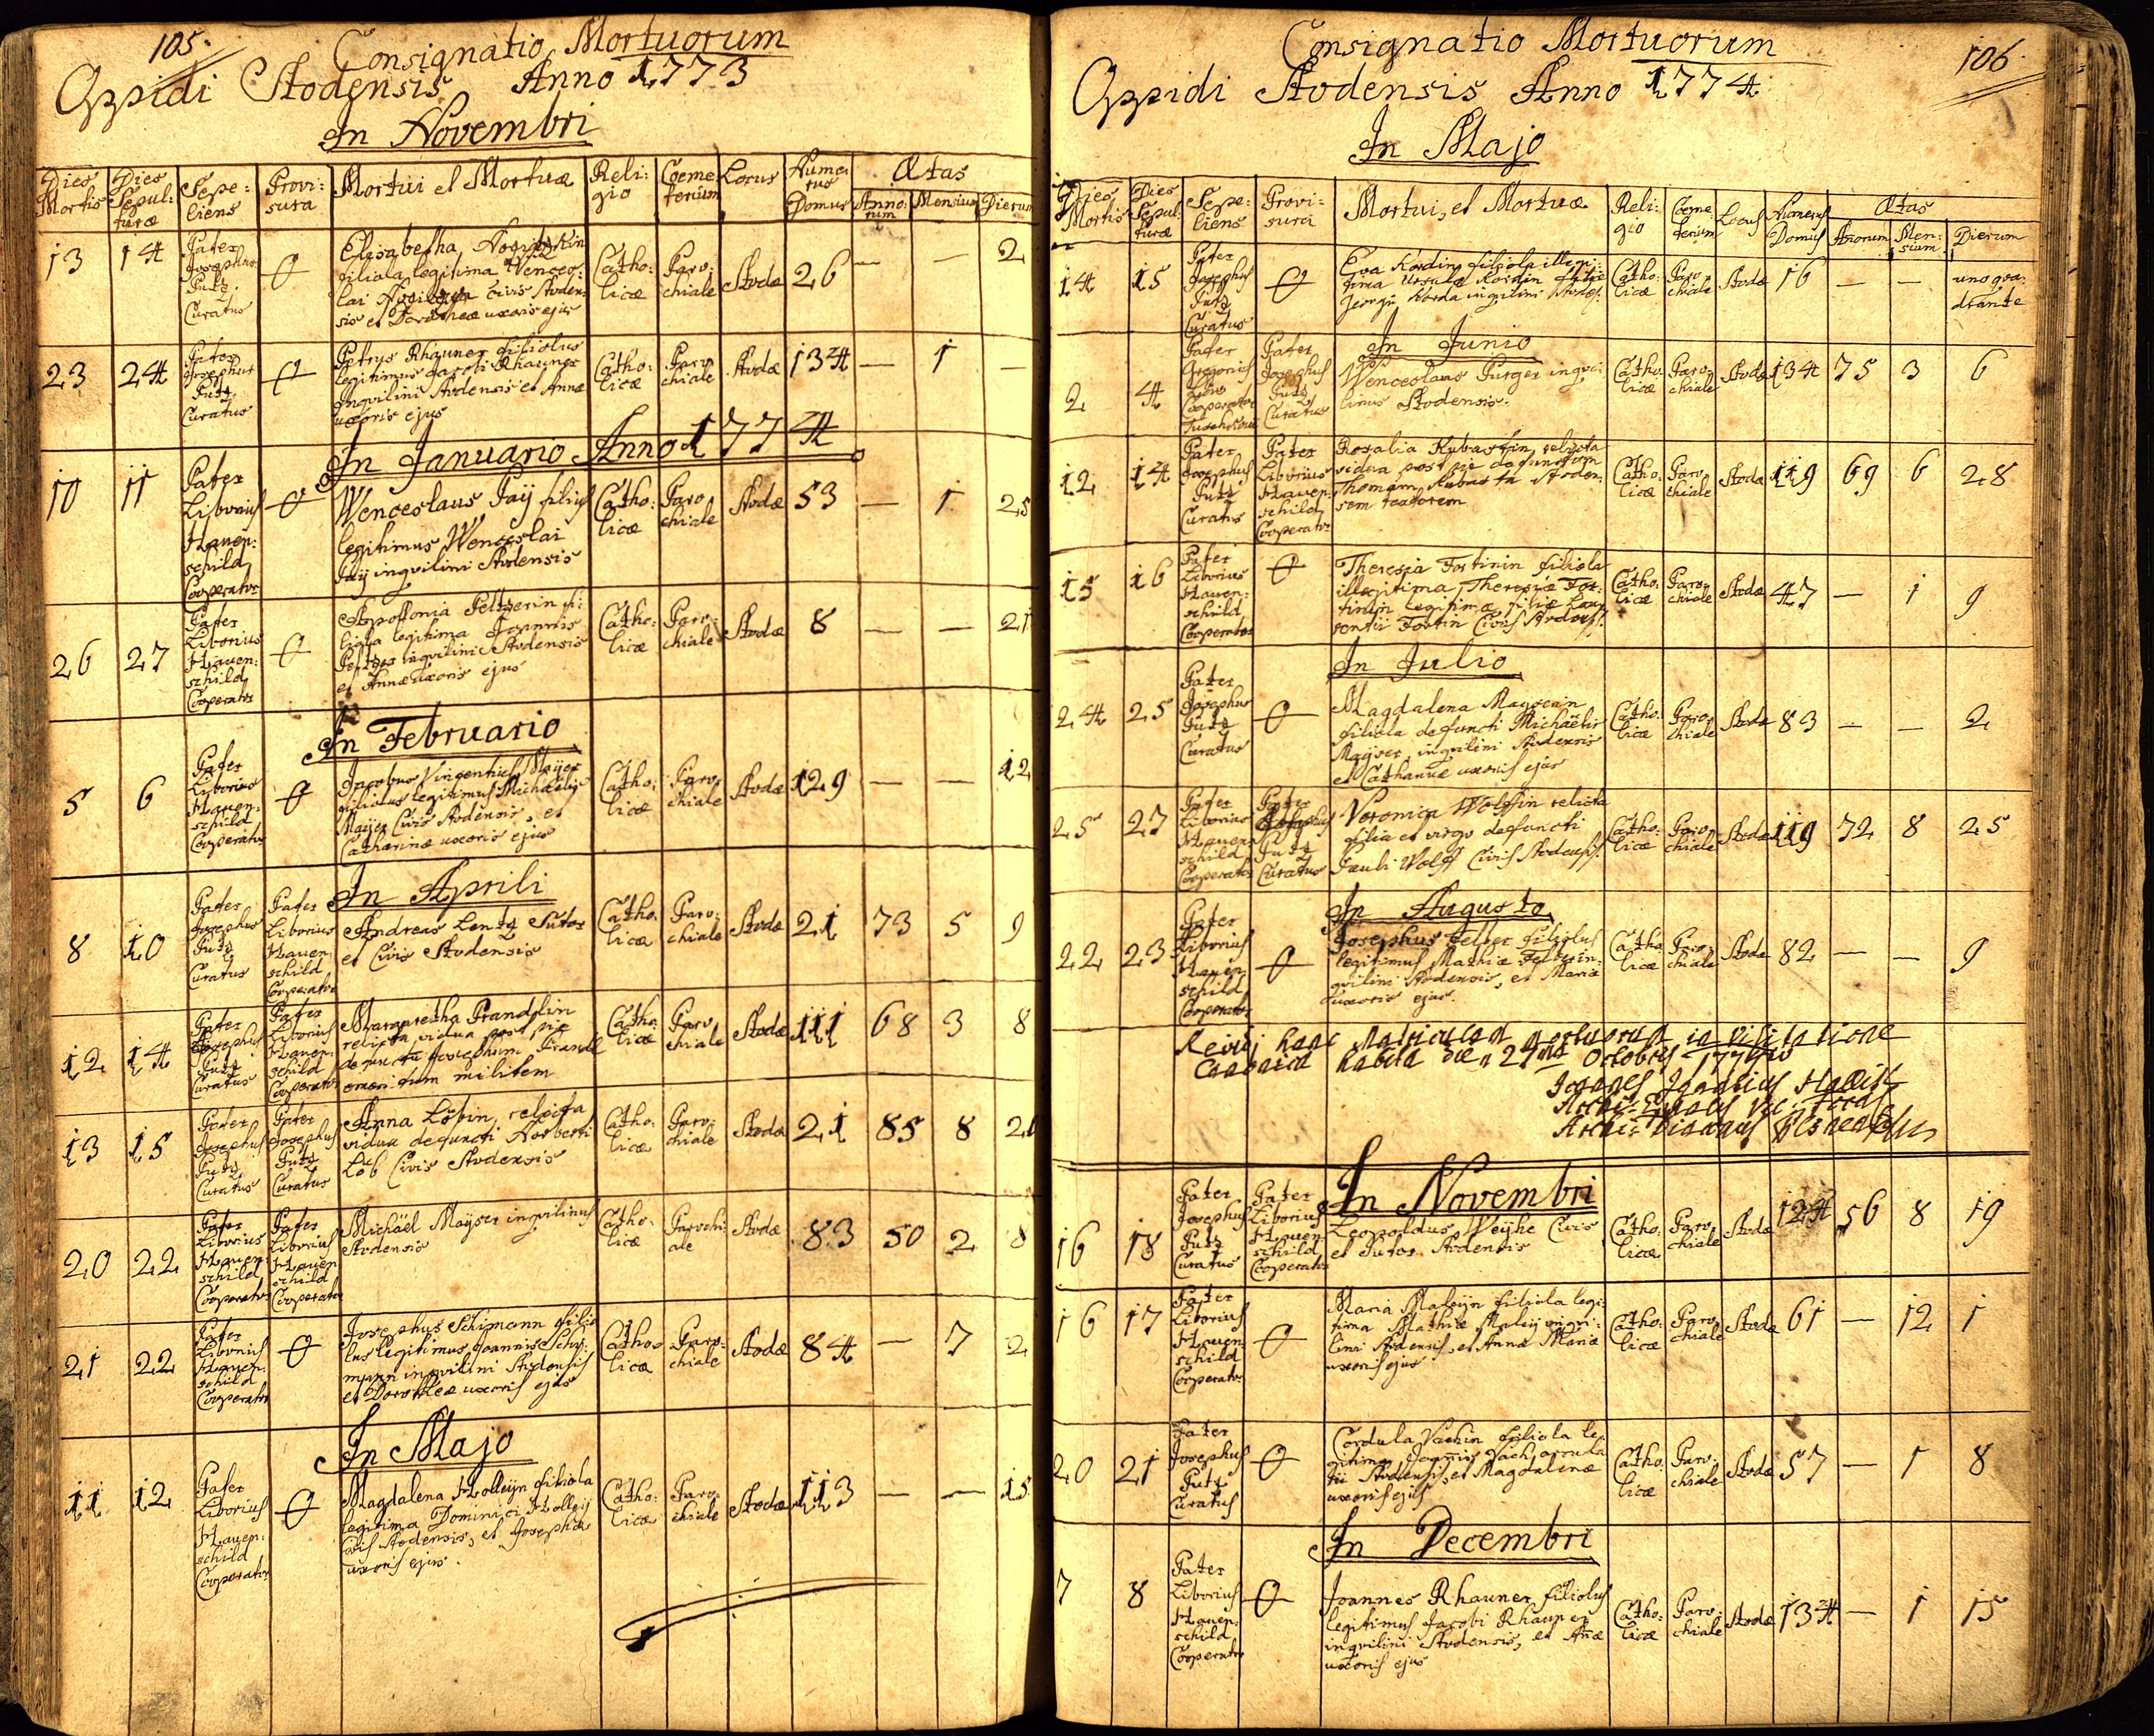 105.
Consignatio Mortuorum
Oppidi Stodensis Anno 1773
In Novembri
Dies Mortis
Dies Sepulturæ
Sepeliens
Provisura
Mortui et Mortuæ
Religio
Coemeterium
Locus
Numerus Domus
Ætas
Annorum
Mensium
Dierum
13 14 Pater Josephus Putz Curatus
Elisabetha
filiola legitima Wences:
lai civis Stoden:
sis et Dorotheæ uxoris ejus
Catho: licæ Paro: chiale Stodæ 26 — — 2
23 24 Pater Josephus Putz Curatus
Petrus Rhauner filiolus
legitimus Jacobi Rhauner
Inquilini Stodensis et Annæ
uxoris ejus
Catho: licæ Paro chiale Stodæ 134 — 1 —
In Januario Anno 1774
10 11 Pater Liborius Hauen: schild Cooperator
Wenceslaus Paÿ filius
legitimus Wenceslai
Paÿ inqvilini Stodensis
Catho: licæ Paro chiale Stodæ 53 — 1 25
26 27 Pater Liborius Hauen: schild Cooperator
Apollonia Peltzerin fi:
liola legitima Joannis
inqvilini Stodensis
et Annæ uxoris ejus
Catho: licæ Paro: chiale Stodæ 8 — — 21
In Februario
5 6 Pater Liborius Hauen: schild Cooperator
Jacobus Vincentius Maÿer
filiolus legitimus Michaëlis
Maÿer Civis Stodensis, et
Catharinæ uxoris ejus
Catho: licæ Paro: chiale Stodæ 129 — — 12
In Aprili
8 10 Pater Josephus Putz Curatus Pater Liborius Hauen: schild Cooperator
Andreas Lentz Sutor
et Civis Stodensis
Catho: licæ Paro: chiale Stodæ 21 73 5 9
12 14 Pater Josephus Putz Curatus Pater Liborius Hauen: schild Cooperator
Margaretha Prandlin
relicta vidua post pie
defunctu Josephum Prandl
emeritum militem
Catho: licæ Paro chiale Stodæ 111 68 3 8
13 15 Pater Josephus Putz Curatus Pater Josephus Putz Curatus
Anna Löbin, relicta
vidua defuncti Norberti
Löb Civis Stodensis
Catho: licæ Paro: chiale Stodæ 21 85 8 21
20 22 Pater Liborius Hauen schild Cooperator Pater Liborius Hauen schild Cooperator
Michäel Maÿser inqvilinus
Stodensis
Catho: licæ Parochi: ale Stodæ 83 50 2 8
21 22 Pater Liborius Hauen: schild Cooperator
Josephus Schimann filio
lus legitimus Joannis Schi:
mann inqvilini Stodensis
et Dorotheæ uxoris ejus
Catho: licæ Paro: chiale Stodæ 84 — 7 2
In Majo
11 12 Pater Liborius Hauen: schild Cooperator
Magdalena Holleÿn filiola
legitima Dominici Holleÿ
Civis Stodensis, et Josephæ
uxoris ejus.
Catho: licæ Paro: chiale Stodæ 113 — — 15
106.
Consignatio Mortuorum
Oppidi Stodensis Anno 1774
In Majo
Dies Mortis
Dies Sepulturæ
Sepeliens
Provisura
Mortui, et Mortuæ
Religio
Coemeterium
Locus
Numerus Domus
Ætas
Annorum
Mensium
Dierum
14 15 Pater Josephus Putz Curatus
Eva Kordin filiola illegi:
tima Ursulæ Kordin filiæ
Georgii Korda inqvilini Stodens:
Catho: licæ Paro: chiale Stodæ 16 — — uno qua: drante
In Junio
2 4 Pater Gregorius Cooperator Pater Josephus Putz Curatus
Wenceslaus Purger inqvi:
linus Stodensis.
Catho: licæ Paro: chiale Stodæ 134 75 3 6
12 14 Pater Josephus Putz Curatus Pater Liborius Hauen: schild Cooperator
Rosalia Kubastin, relicta
vidua post pie defunctum
Thomam Kubasta Stoden:
sem textorem
Catho: licæ Paro: chiale Stodæ 119 69 6 28
15 16 Pater Liborius Hauen: schild Cooperator
Theresia Fortinin filiola
illegitima, Theresiæ For:
tinin legitimæ filiæ Lau:
rentii Fortin Civis Stodens:
Catho: licæ Paro: chiale Stodæ 47 — 1 9
In Julio
24 25 Pater Josephus Putz Curatus
Magdalena Mayserin
filiola defuncti Michäelis
Maÿser inqvilini Stodensis
et Catharinæ uxoris ejus
Catho: licæ Paro: chiale Stodæ 83 — — 2
25 27 Pater Liborius Hauen schild Cooperator Pater Josephus Putz Curatus
Veronica Wolffin relicta
filia et virgo defuncti
Pauli Wolff Civis Stodens:
Catho: licæ Paro: chiale Stodæ 119 72 8 25
In Augusto
22 23 Pater Liborius Hauen schild Cooperator
Josephus Felber filiolus
legitimus Mathiæ Felber in:
qvilini Stodensis, et Mariæ
uxoris ejus.
Catho: licæ Paro: chiale Stodæ 82 — — 9
Revidi hanc Matriculam mortuorum in visitatione
Canonica habita die 27 Octobris 1774
Joannes Ignatius
Vic: Foran:
Archi: Diaconus Plsnensis
In Novembri
16 18 Pater Josephus Putz Curatus Pater Liborius Hauen: schild Cooperator
Leopoldus Weÿhe Civis
et Sutor Stodensis
Catho: licæ Paro: chiale Stodæ 124 56 8 19
16 17 Pater Liborius Hauen schild Cooperator
Maria Maleÿn filiola legi:
tima Mathiæ Maleÿ inqvi:
lini Stodensis, et Annæ Mariæ
uxoris ejus
Catho: licæ Paro: chiale Stodæ 61 — 12 1
20 21 Pater Josephus Putz Curatus
Cordula Vachin filiola le:
gitima Joannis Vach
Stodensis, et Magdalenæ
uxoris ejus
Catho: licæ Paro: chiale Stodæ 57 — 1 8
In Decembri
7 8 Pater Liborius Hauen: schild Cooperator
Joannes Rhauner filiolus
legitimus Jacobi Rhauner
inqvilini Stodensis, et Añæ
uxoris ejus
Catho: licæ Paro: chiale Stodæ 134 — 1 15